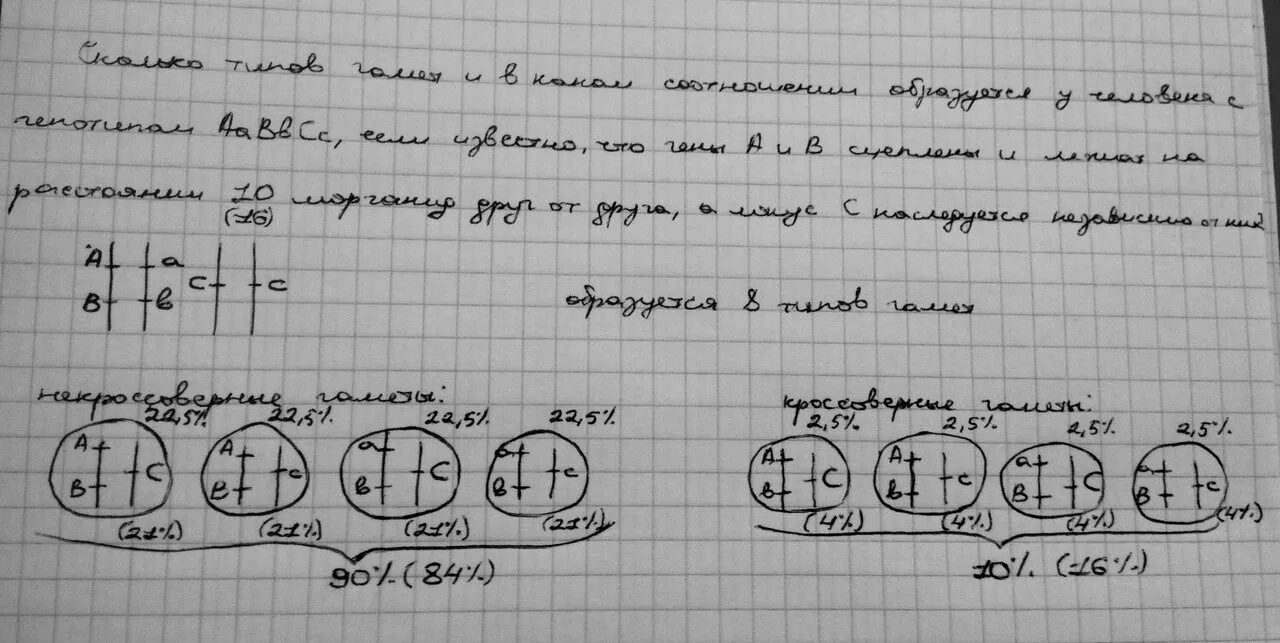 Сколько типов гамет и в каком соотношении образуется у человека с
генотипом АаВвСс, если известно, что гены А и В сцеплены и лежат на
расстоянии 10 морганид друг от друга, а локус С наследуется независимо от них
(16)
А а
С с
В в
образуется 8 типов гамет
некроссоверные гаметы:
кроссоверные гаметы:
22,5% 22,5% 22,5% 22,5%
2,5% 2,5% 2,5% 2,5%
А В С
А В с
а в С
а в с
А в С
А в с
а В С
а В с
(21%) (21%) (21%) (21%)
(4%) (4%) (4%) (4%)
90% (84%)
10% (16%)